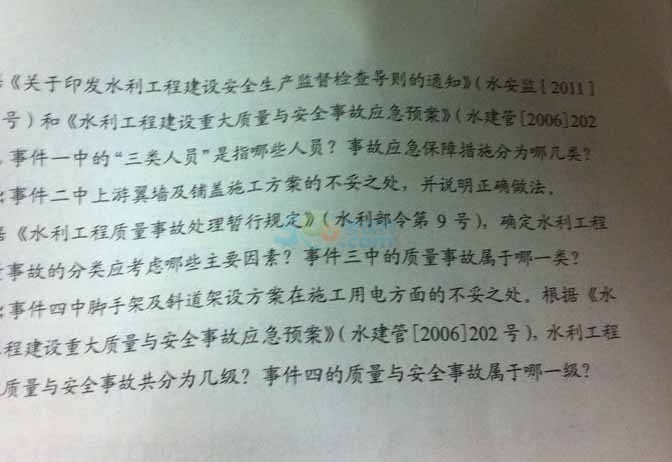 《关于印发水利工程建设安全生产监督检查导则的通知》(水安监[2011]
号)和《水利工程建设重大质量与安全事故应急预案》(水建管[2006]202
,事件一中的“三类人员”是指哪些人员?事故应急保障措施分为哪几类?
事件二中上游翼墙及铺盖施工方案的不妥之处,并说明正确做法。
《水利工程质量事故处理暂行规定》(水利部令第9号),确定水利工程
事故的分类应考虑哪些主要因素?事件三中的质量事故属于哪一类?
事件四中脚手架及斜道架设方案在施工用电方面的不妥之处。根据《水
程建设重大质量与安全事故应急预案》(水建管[2006]202号),水利工程
质量与安全事故共分为几级?事件四的质量与安全事故属于哪一级?